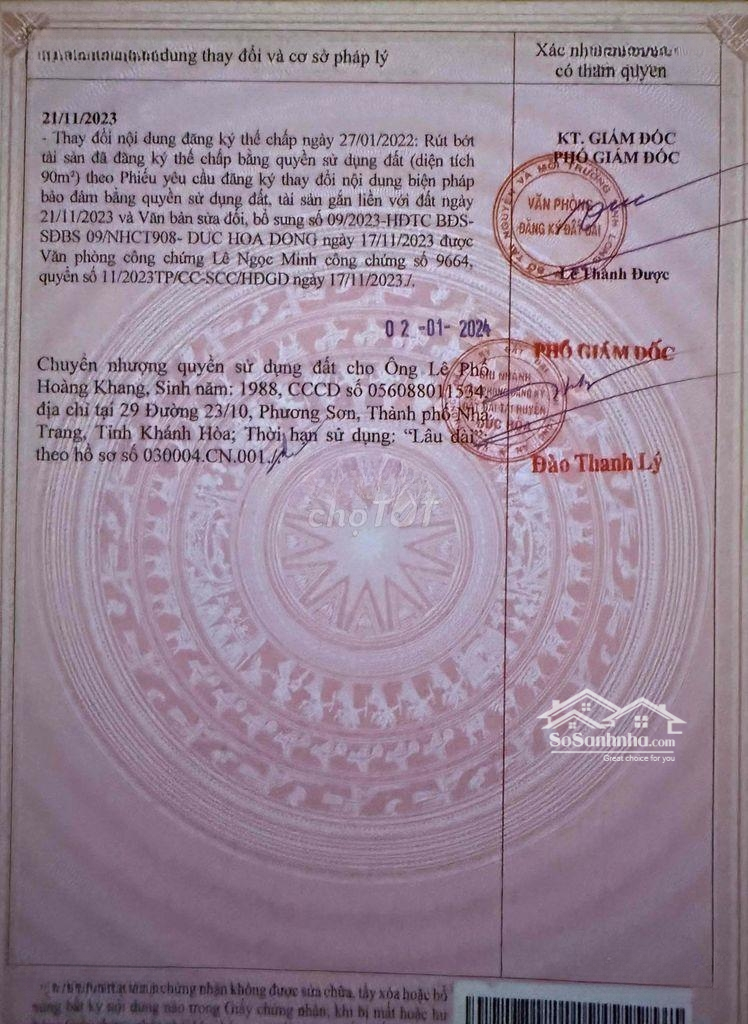 dung thay đổi và cơ sở pháp lý
Xác nhận của cơ quan
có thẩm quyền
21/11/2023
- Thay đổi nội dung đăng ký thế chấp ngày 27/01/2022: Rút bớt
tài sản đã đăng ký thế chấp bằng quyền sử dụng đất (diện tích
90m²) theo Phiếu yêu cầu đăng ký thay đổi nội dung biện pháp
bảo đảm bằng quyền sử dụng đất, tài sản gắn liền với đất ngày
21/11/2023 và Văn bản sửa đổi, bổ sung số 09/2023-HĐTC BĐS-
SĐBS 09/NHCT908- DUC HOA DONG ngày 17/11/2023 được
Văn phòng công chứng Lê Ngọc Minh công chứng số 9664,
quyển số 11/2023TP/CC-SCC/HĐGD ngày 17/11/2023./.
KT. GIÁM ĐỐC
PHÓ GIÁM ĐỐC
VĂN PHÒNG
ĐĂNG KÝ ĐẤT ĐAI
Lê Thành Được
02-01-2024
Chuyển nhượng quyền sử dụng đất cho Ông Lê Phố
Hoàng Khang, Sinh năm: 1988, CCCD số 056088011534,
địa chỉ tại 29 Đường 23/10, Phương Sơn, Thành phố Nha
Trang, Tỉnh Khánh Hòa; Thời hạn sử dụng: “Lâu dài”;
theo hồ sơ số 030004.CN.001./.
PHÓ GIÁM ĐỐC
CHI NHÁNH
ĐỨC HÒA
Đào Thanh Lý
chợTỐT
SoSanhnha.com
Great choice for you
chứng nhận không được sửa chữa, tẩy xóa hoặc bổ
sung bất kỳ nội dung nào trong Giấy chứng nhận; khi bị mất hoặc hư